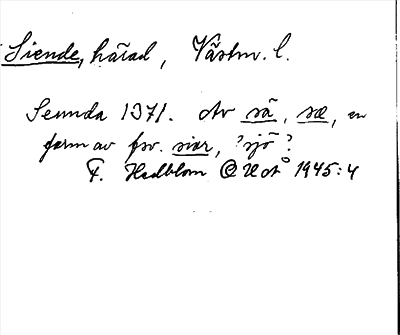 Siende, härad, Västm. l.
Semnda 1371. Av sä, sæ, en
form av fsv. siar, 'sjö'.
F. Hedblom OUÅ 1945:4